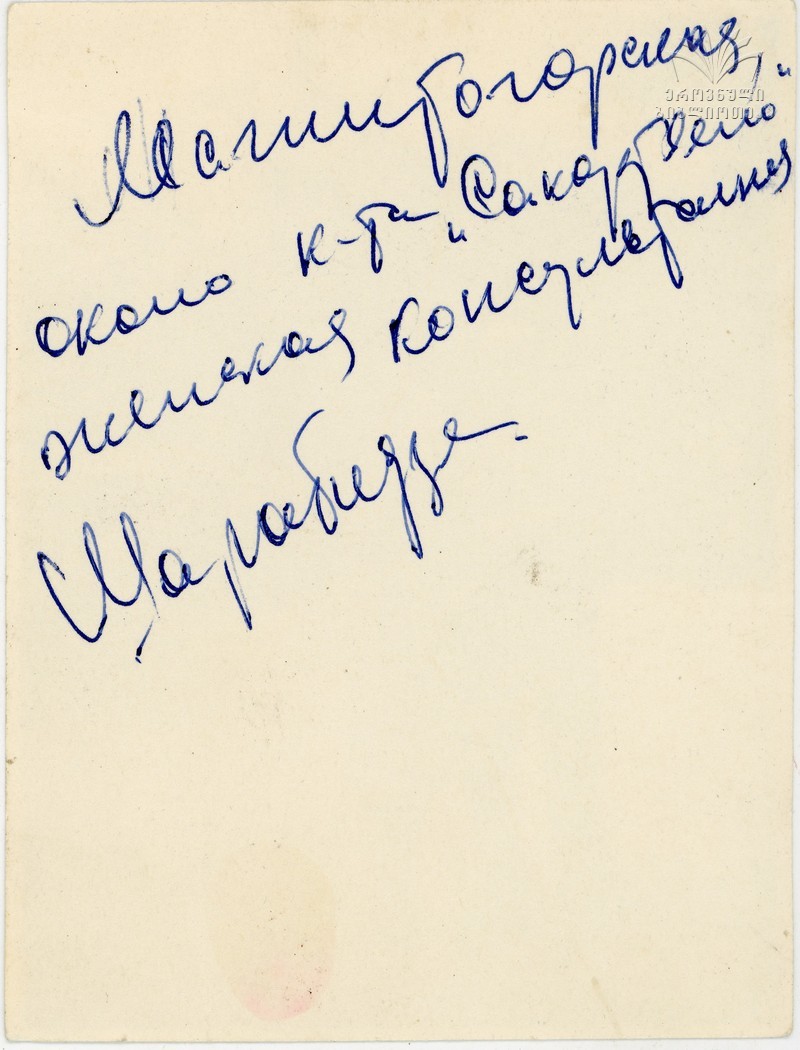 Магнитогорская,
около к-та „Сакартвело“
женская консультация
Царабидзе.
ეროვნული
ბიბლიოთეკა